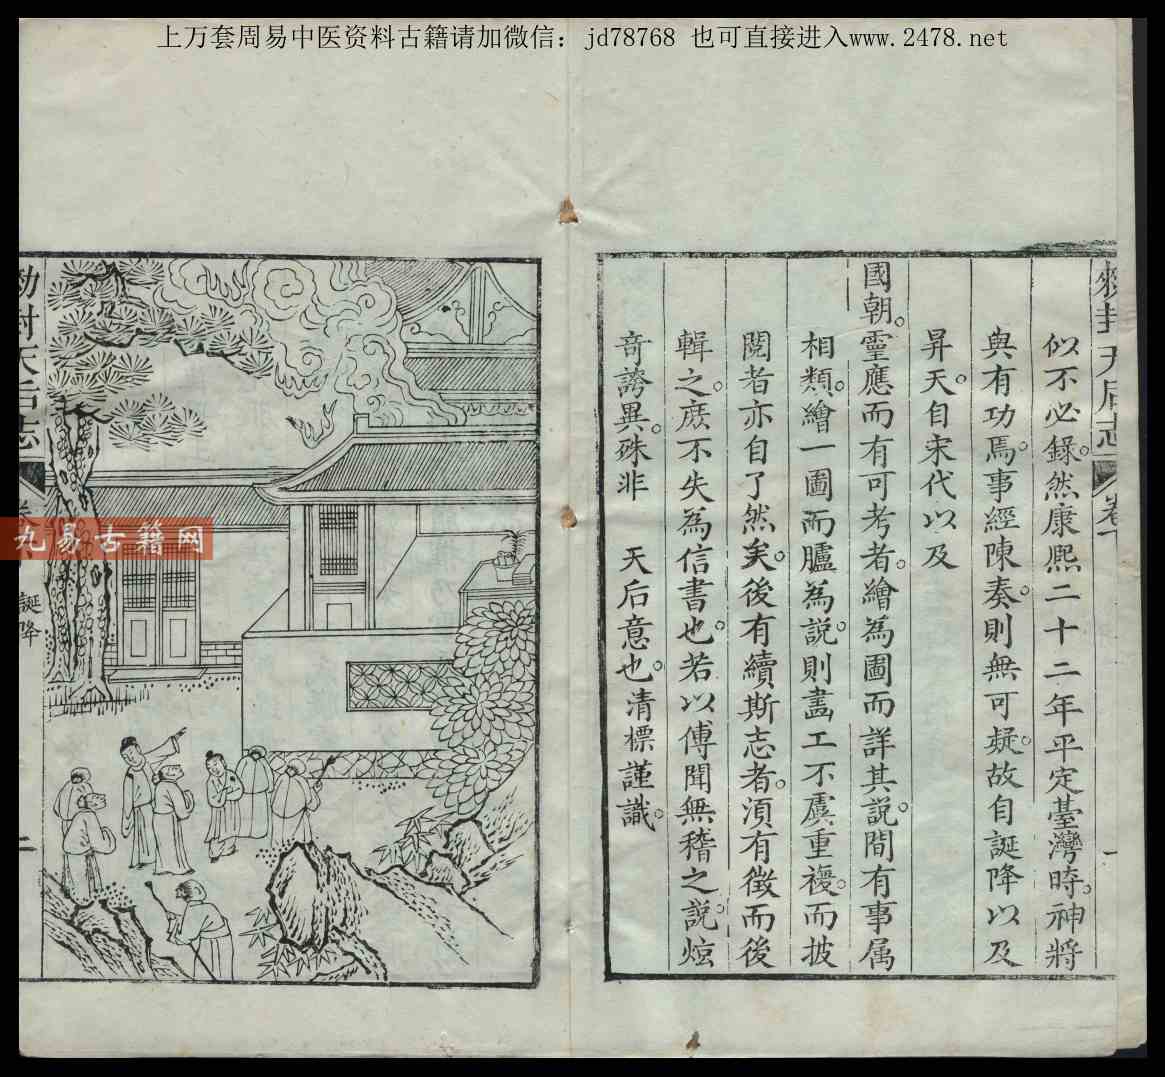 上万套周易中医资料古籍请加微信：jd78768 也可直接进入www.2478.net
敕封天后志
卷下
一
似不必錄。然康熙二十二年平定臺灣時。神將
與有功焉。事經陳奏。則無可疑。故自誕降以及
昇天。自宋代以及
國朝。靈應而有可考者。繪為圖而詳其說。間有事属
相類。繪一圖而臚為說。則畵工不虞重複。而披
閱者亦自了然矣。後有續斯志者。湏有徵而後
輯之。庶不失為信書也。若以傳聞無稽之說。炫
奇誇異。殊非 天后意也。清標謹識。
勅封天后志
誕降
二
九易古籍网